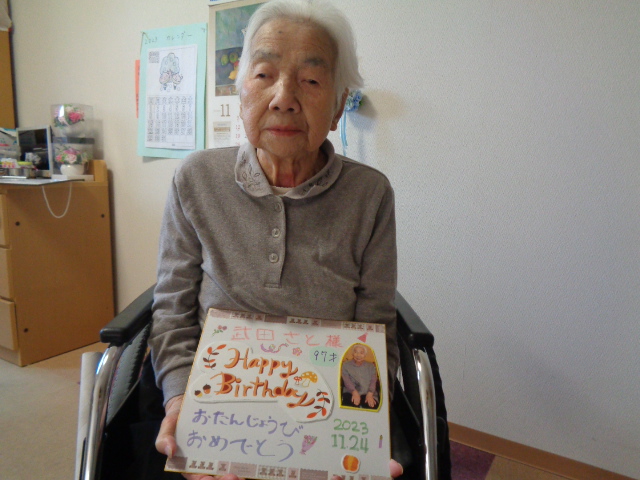 11
武田さと様
97才
Happy
Birthday
おたんじょうび
おめでとう
2023
11.24